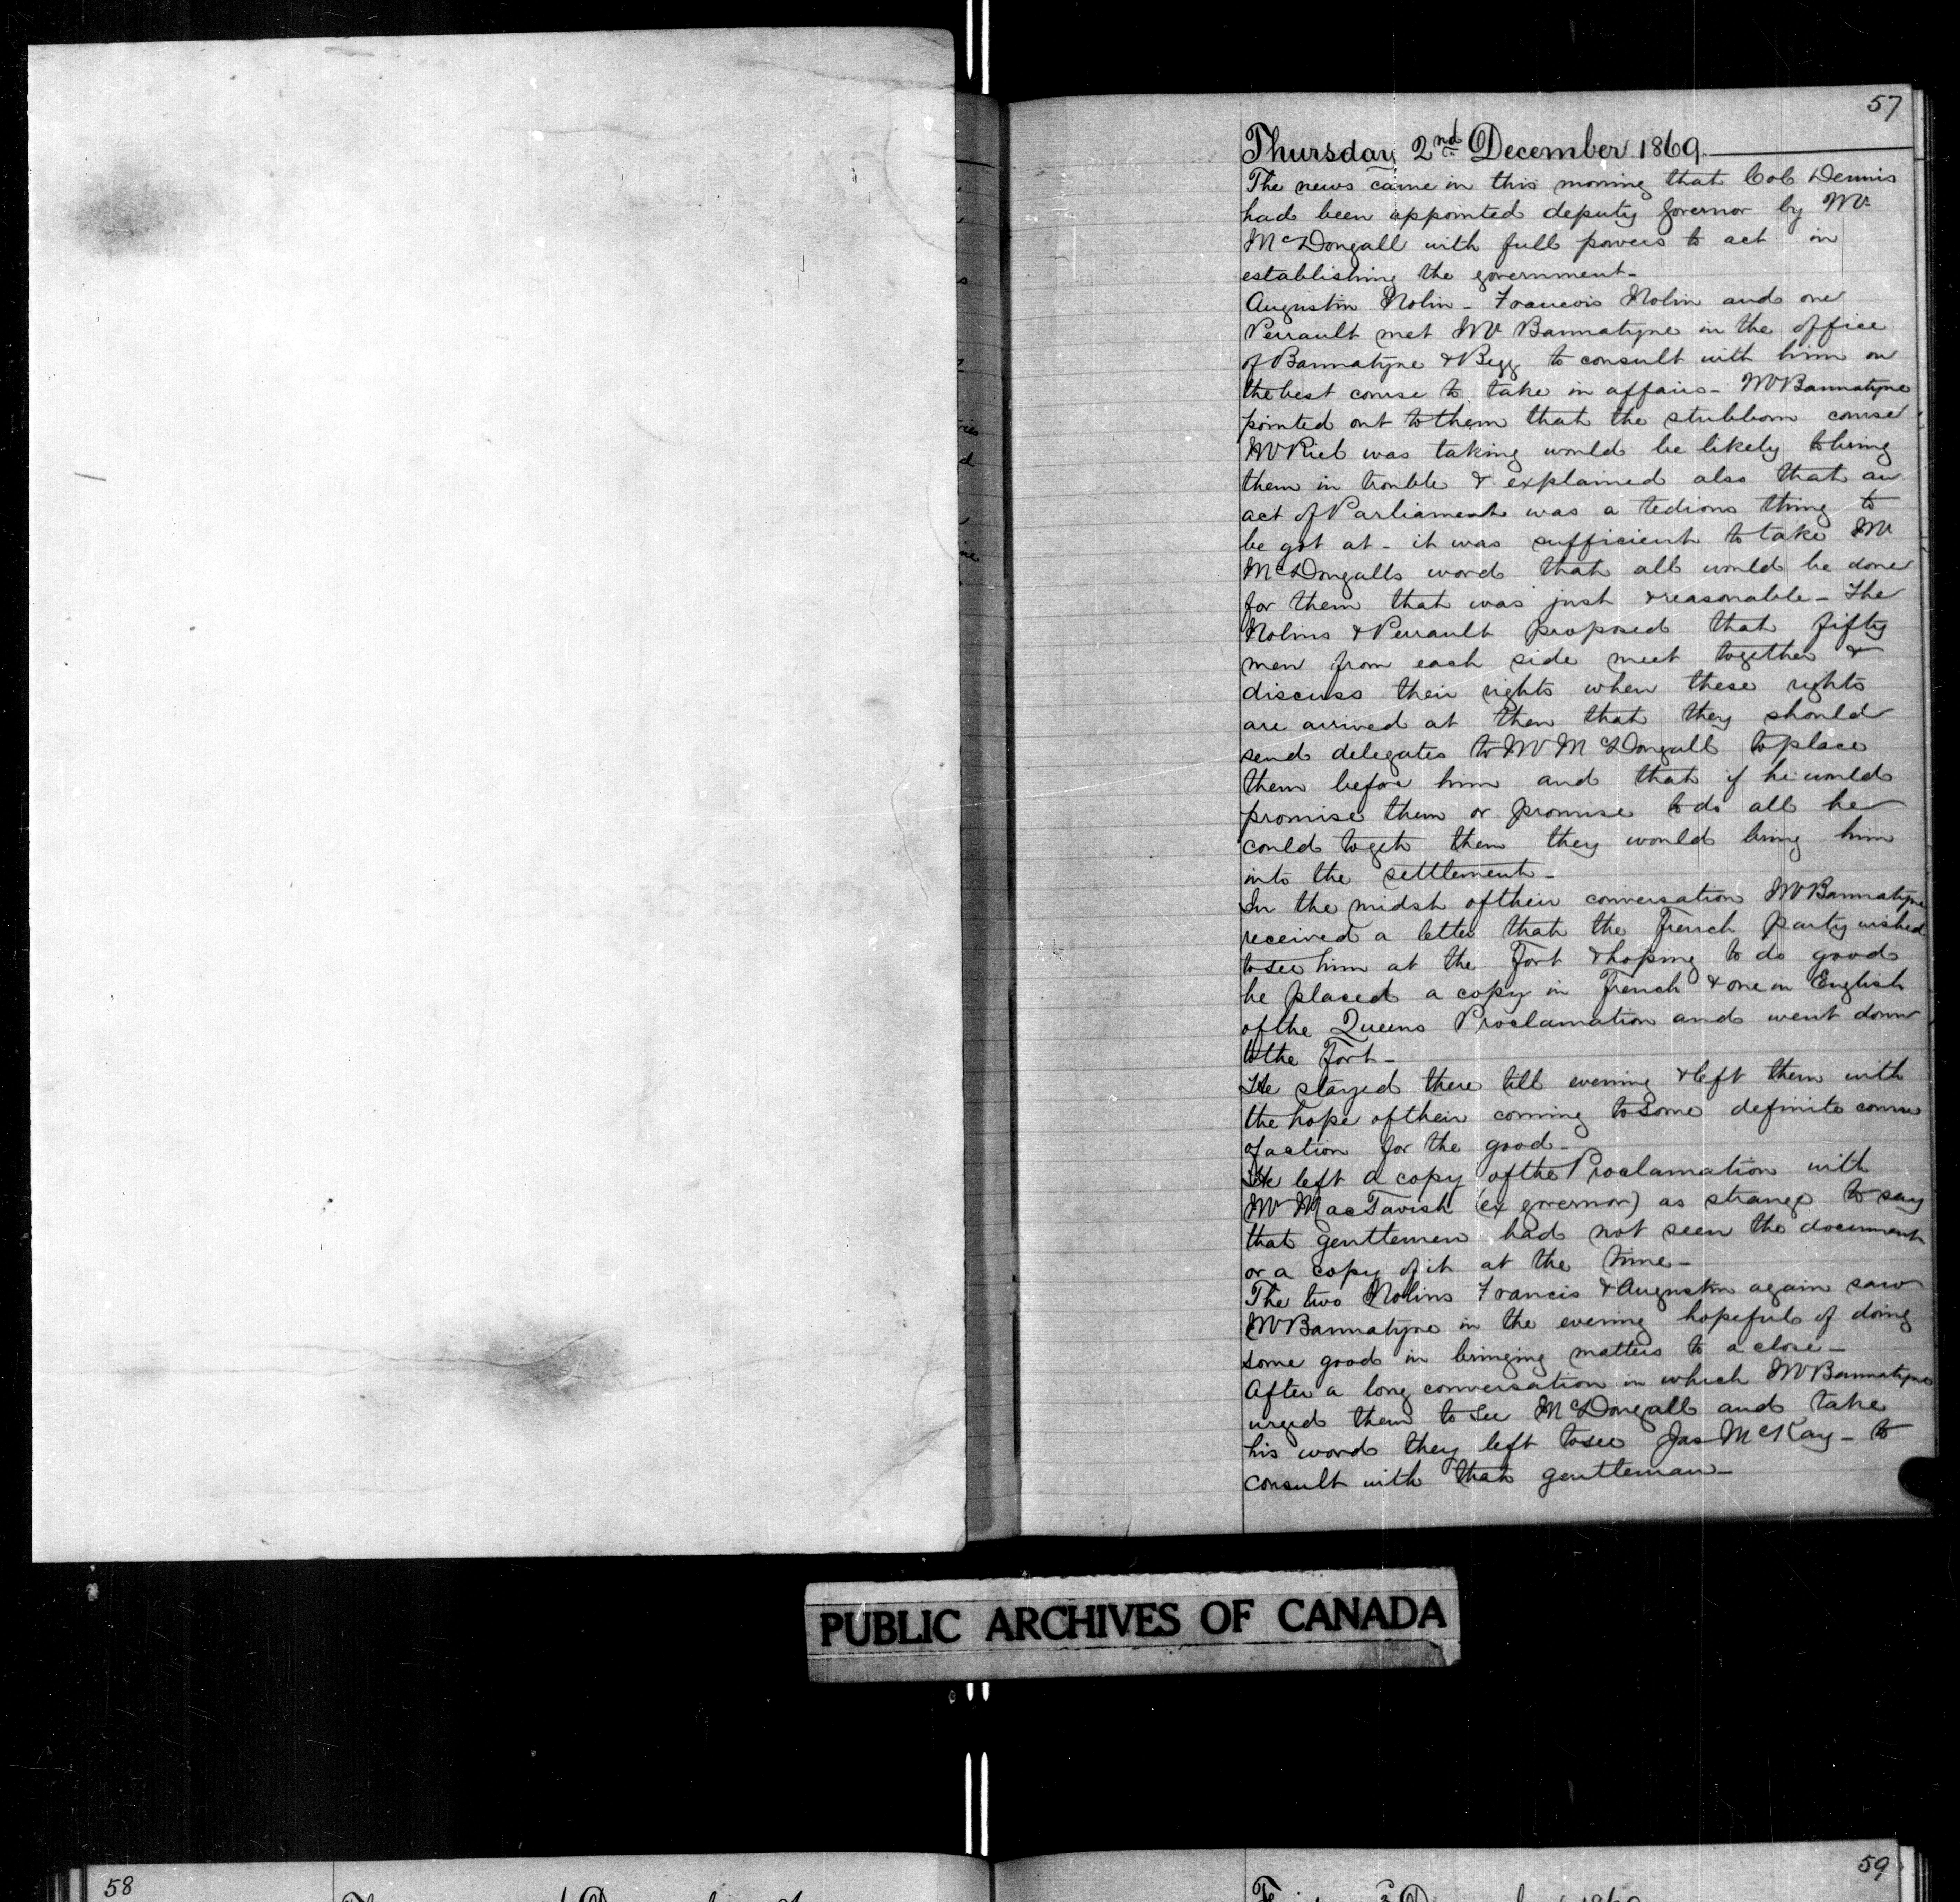 57
Thursday 2nd December 1869.
The news came in this morning that Col Dennis
had been appointed deputy Governor by Mr
McDougall with full powers to act in
establishing the government-
Augustin Nolin - Francois Nolin and one
Perrault met Mr Bannatyne in the office
of Bannatyne & Begg to consult with him on
the best course to take in affairs - Mr Bannatyne
pointed out to them that the stubborn course
Mr Riel was taking would be likely to bring
them in trouble & explained also that an
act of Parliament was a tedious thing to
be got at - it was sufficient to take Mr
McDougalls word that all would be done
for them that was just & reasonable - The
Nolins & Perrault proposed that fifty
men from each side meet together &
discuss their rights when these rights
are arrived at then that they should
send delegates to Mr McDougall to place
them before him and that if he would
promise them or promise to do all he
could to get them they would bring him
into the settlement-
In the midst of their conversation Mr Bannatyne
received a letter that the French party wished
to see him at the Fort & hoping to do good
he placed a copy in French & one in English
of the Queens Proclamation and went down
to the Fort-
He stayed there till evening & left them with
the hope of their coming to some definite course
of action for the good-
He left a copy of the Proclamation with
Mr MacTavish (ex governor) as strange to say
that gentlemen had not seen the document
or a copy of it at the time-
The two Nolins Francis & Augustin again saw
Mr Bannatyne in the evening hopeful of doing
some good in bringing matters to a close-
After a long conversation in which Mr Bannatyne
urged them to see McDougall and take
his word they left to see Jas McKay - to
consult with that gentleman-
PUBLIC ARCHIVES OF CANADA
58
59